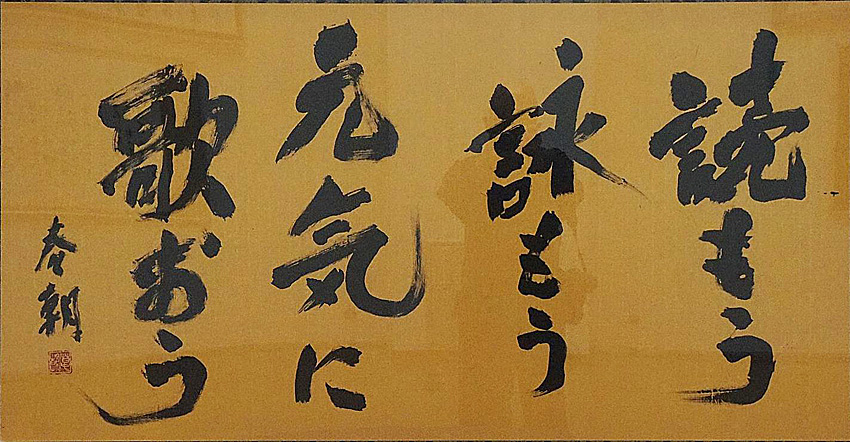 読もう
詠もう
元気に
歌おう
春朝